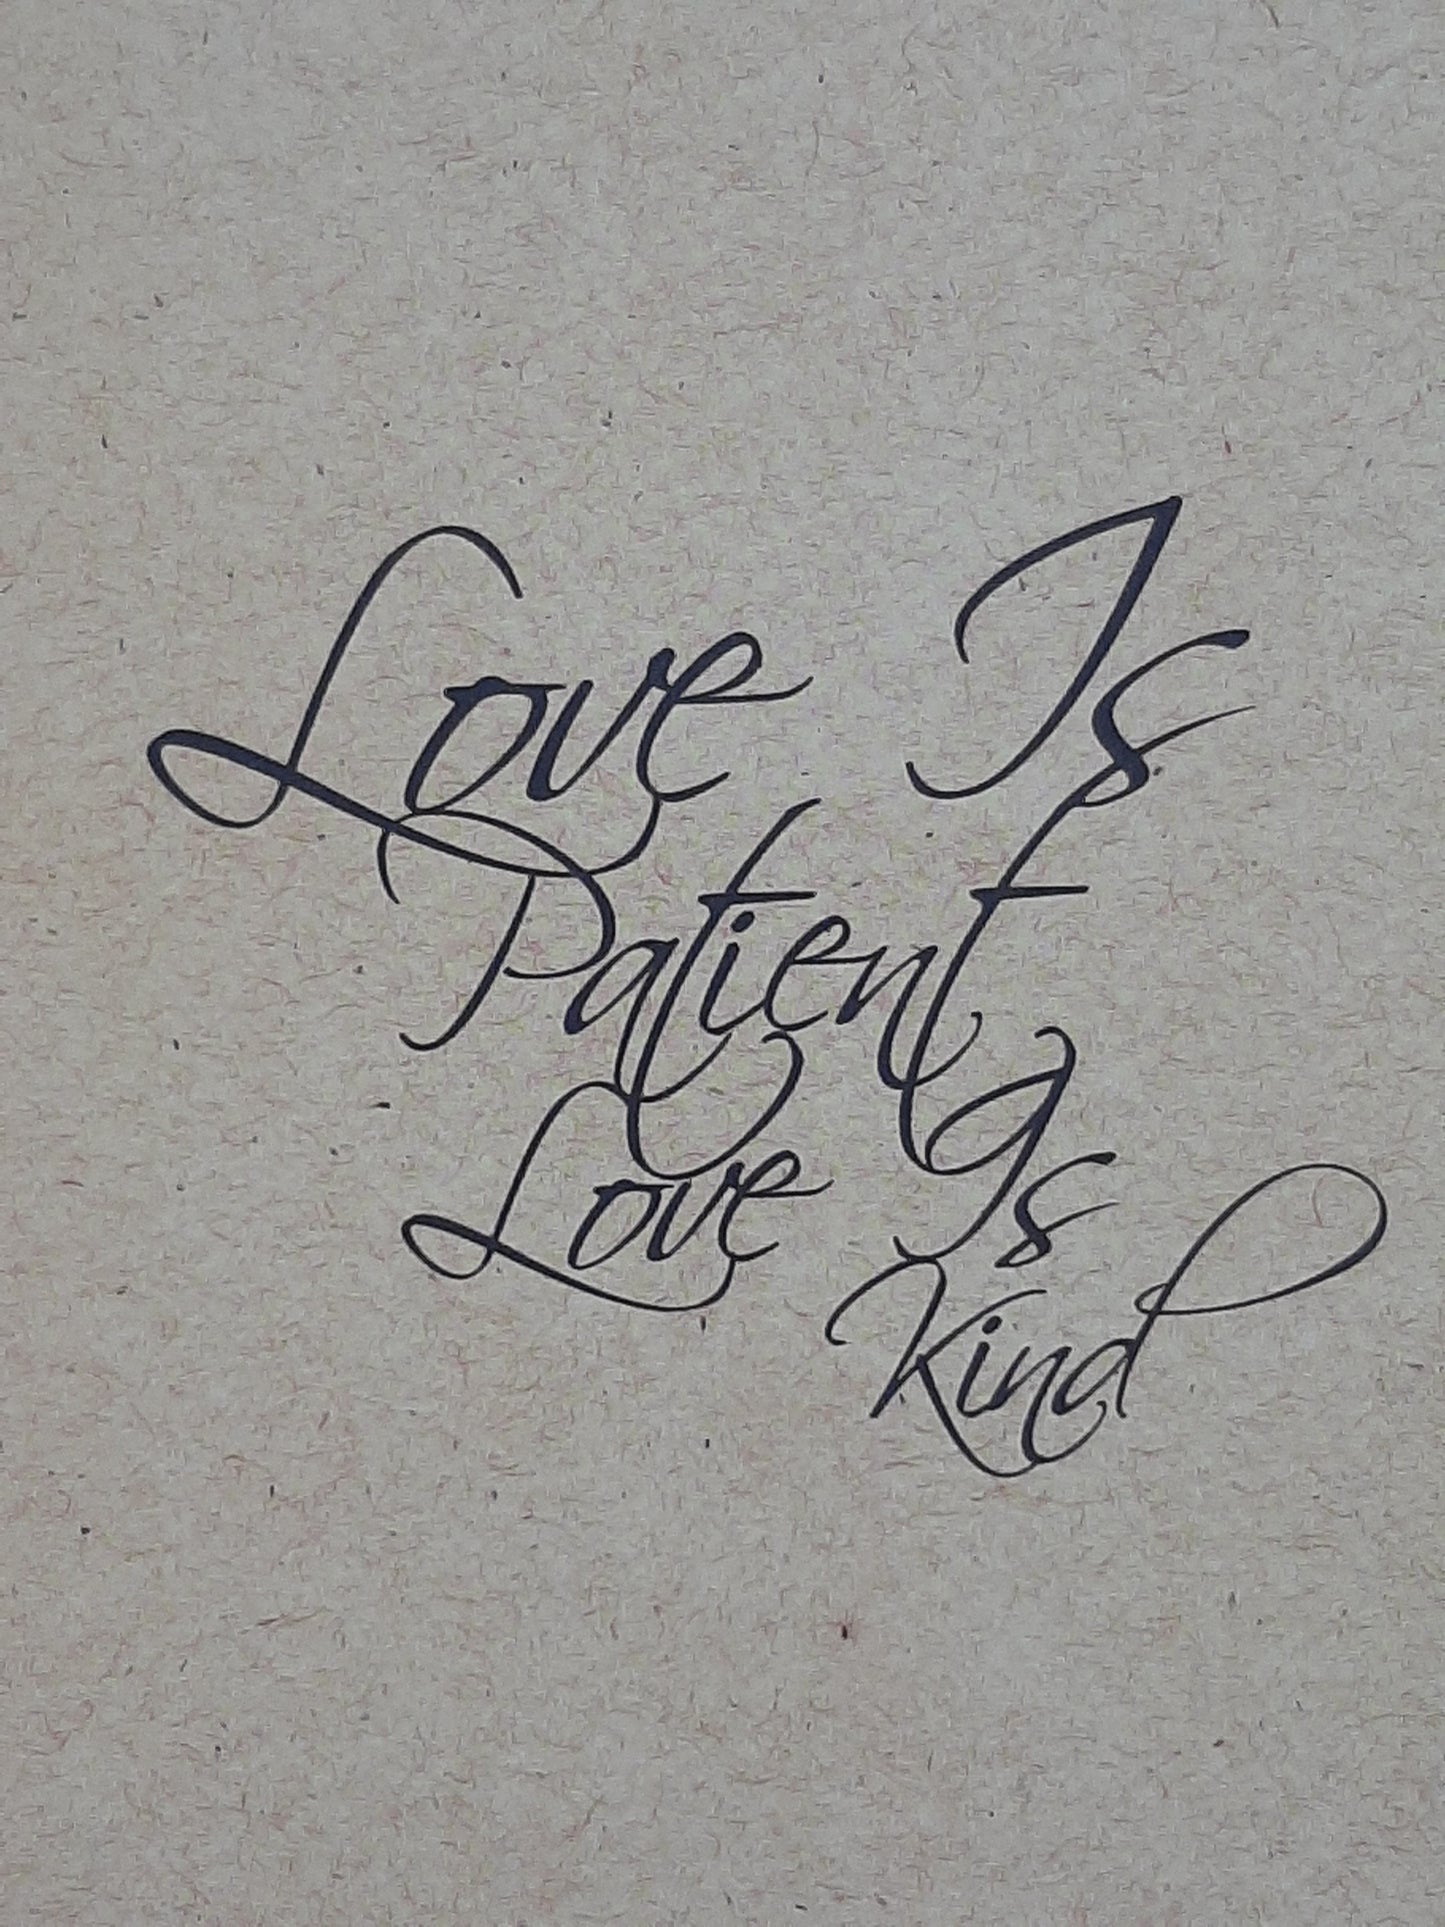 Love Is
Patient
Love Is
Kind